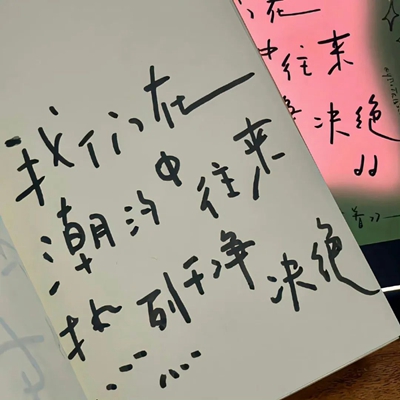 我们在
潮汐中往来
热烈干净决绝
在
中往来
净决绝